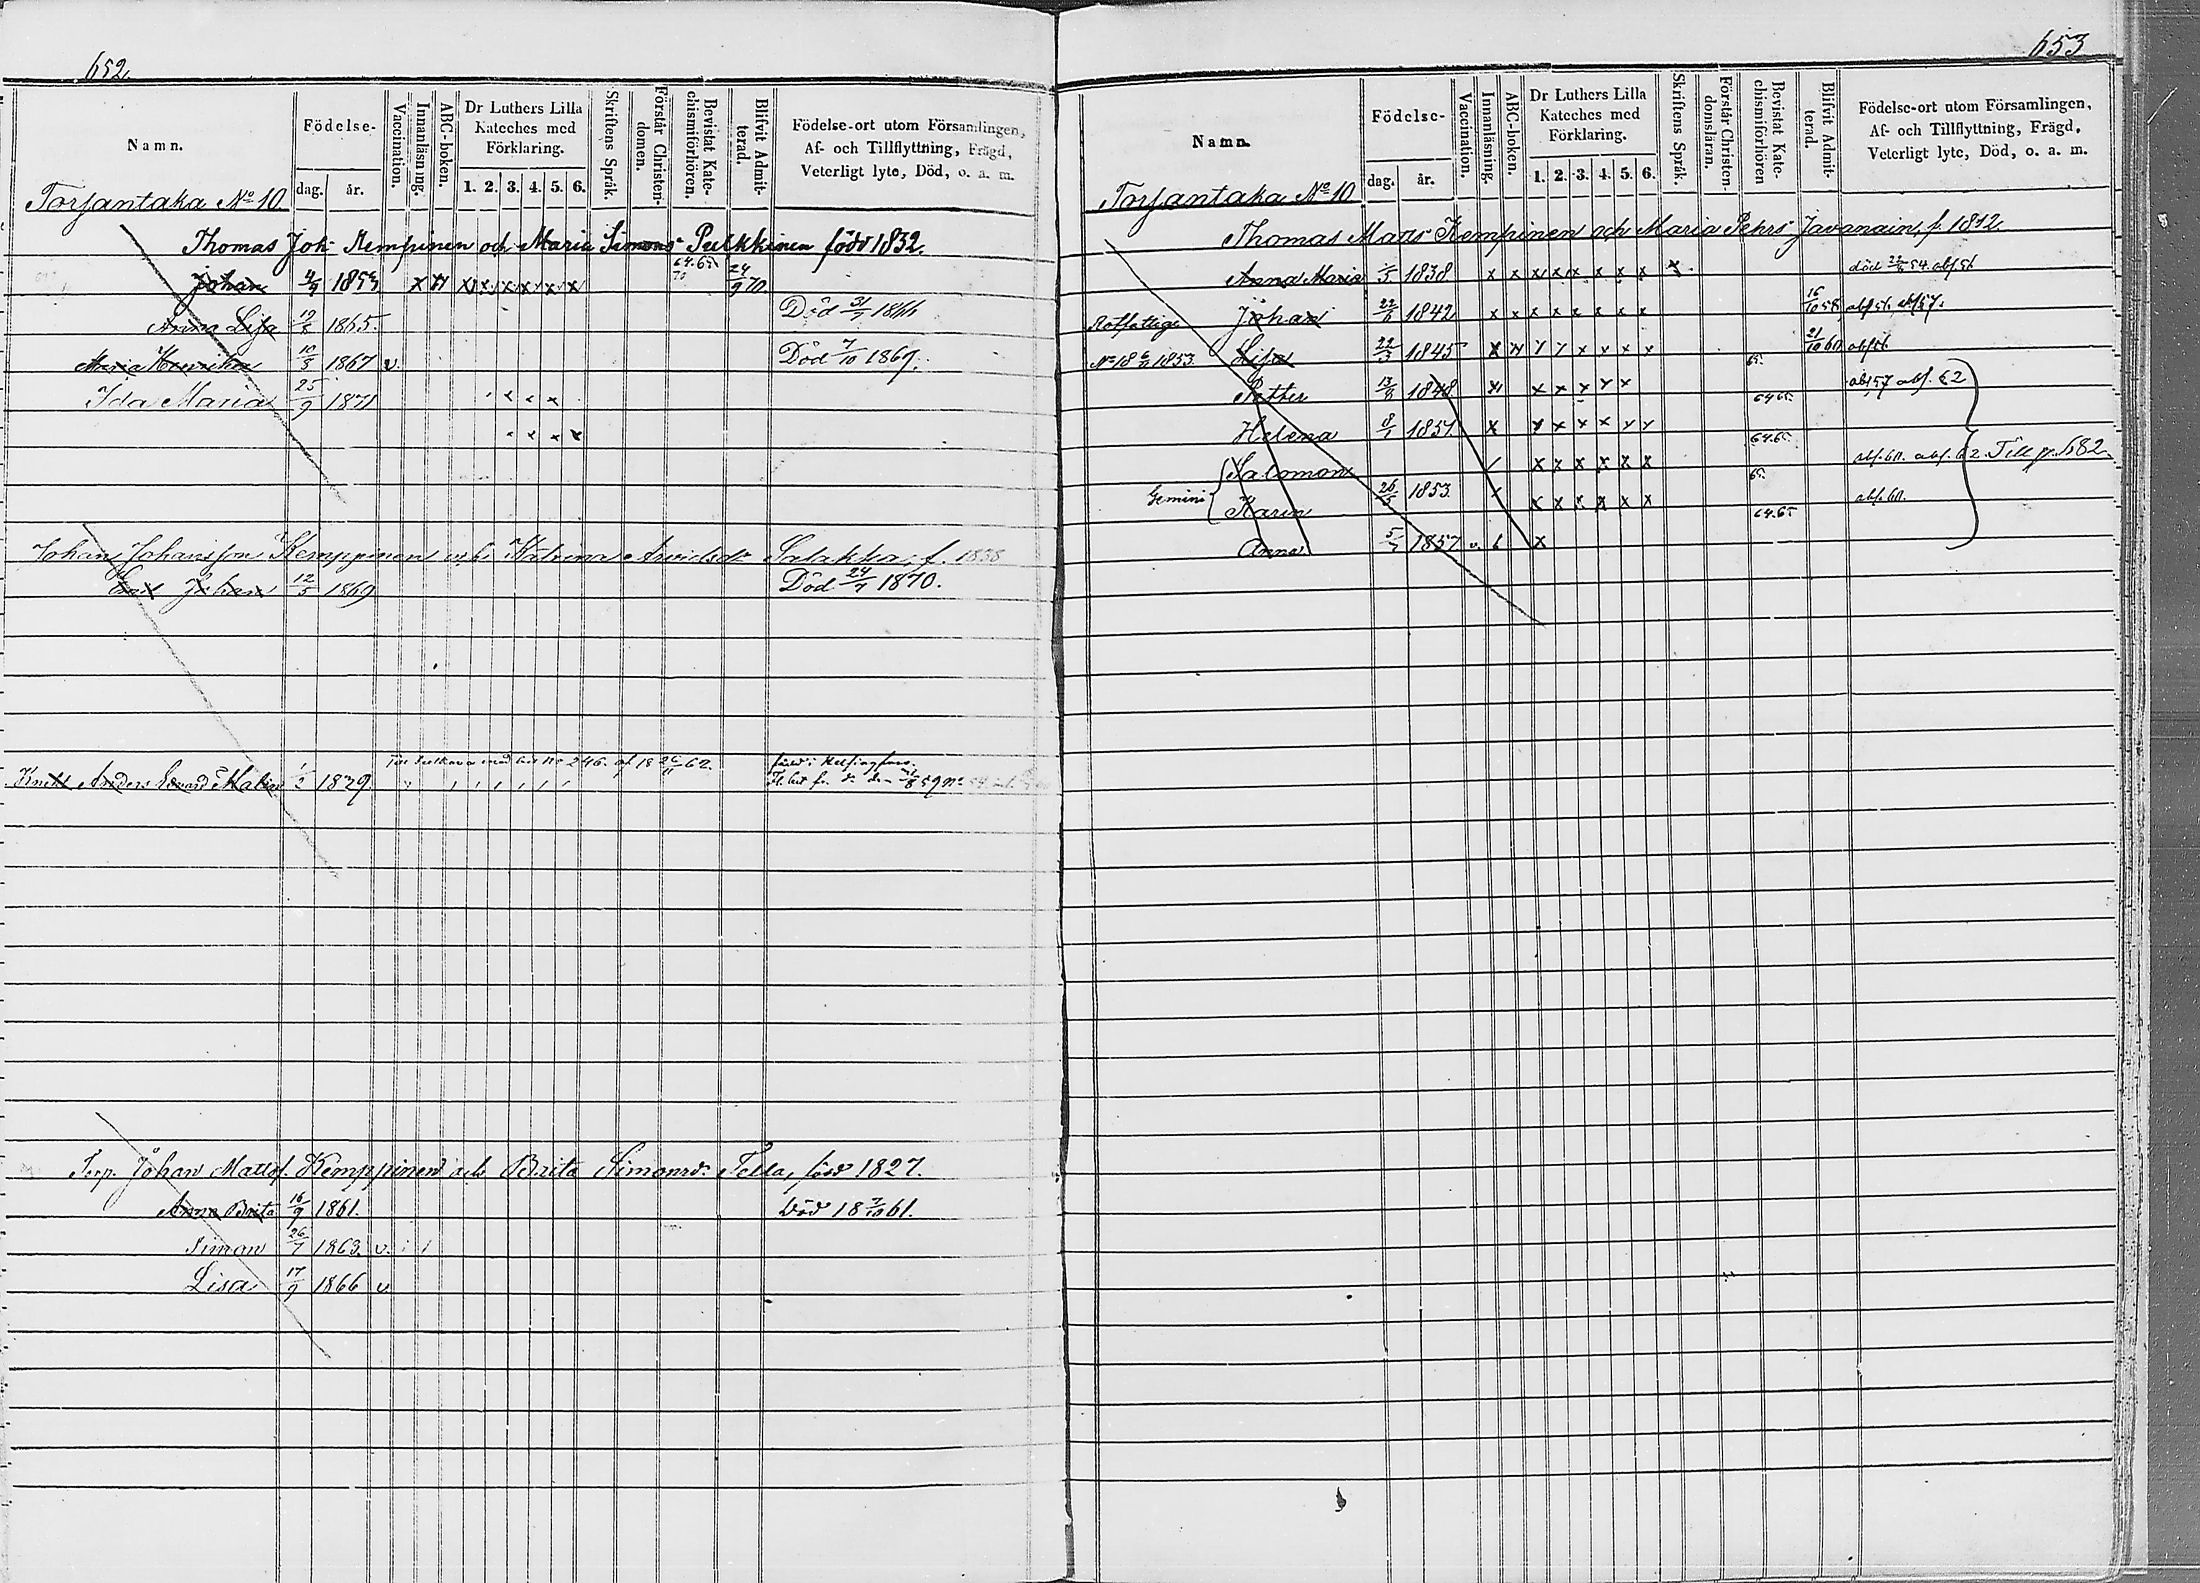 652.
Namn.
Födelse-
dag. år.
Vaccination.
Innanläsning.
ABC-boken.
Dr Luthers Lilla Kateches med Förklaring.
1. 2. 3. 4. 5. 6.
Skriftens Språk.
Förstår Christendomen.
Bevistat Katechismiförhören.
Blifvit Admitterad.
Födelse-ort utom Församlingen,
Af- och Tillflyttning, Frägd,
Veterligt lyte, Död, o. a. m.
Torsantaka No 10
Thomas Joh: Kempinen och Maria Simons Pulkkinen född 1832.
Johan 4/9 1855 x x x x x x x x 64.65 70 24/9 70.
Anna Lisa 1865. Död 31/7 1866
Maria Henrika 10/3 1867 v. Död 7/10 1869.
Ida Maria 25/9 1871 x x x
x x x x
Johan Johansson Kemppinen och Katrina Arvidsdr f. 1838
Johan 12/5 1869 Död 24/7 1870.
Till med bet No 246. af 18 26/11 62.
Knekt Anders Edvard Malin 1829. född i Helsingfors.
Torp. Johan Matts. Kemppinen och Brita Simonsd: Tella, född 1827.
Anna Brita 16/9 1861. Död 18 7/10 61.
Simon 26/7 1863. v.
Lisa 17/9 1866 v
653
Namn.
Födelse-
dag. år.
Vaccination.
Innanläsning.
ABC-boken.
Dr Luthers Lilla Kateches med Förklaring.
1. 2. 3. 4. 5. 6.
Skriftens Språk.
Förstår Christendomsläran.
Bevistat Katechismiförhören
Blifvit Admitterad.
Födelse-ort utom Församlingen,
Af- och Tillflyttning, Frägd,
Veterligt lyte, Död, o. a. m.
Torsantaka No 10
Thomas Matts Kempinen och Maria Pehrs Javanain, f. 1812.
Anna Maria 1838. x x x x x x x x x död 54. abs. 56
Johan 22/6 1842 x x x x x x x x 16/10 58 abs 56, abs 57.
No 18 1853. Lisa 22/3 1845 x x x x x x x x 65. 21/10 60 abs 56.
Petter 13/6 1848. x x x x x x 64.65. abs 57 abs. 62
Helena 8/1 1851. x x x x x x x 64.65
Salomon x x x x x x 65. abs. 60. abs. 62. Till p. 682
Gemini 26/5 1853.
Karin x x x x x x 64.65 abs. 60.
Anna 5/7 1857 v. b x